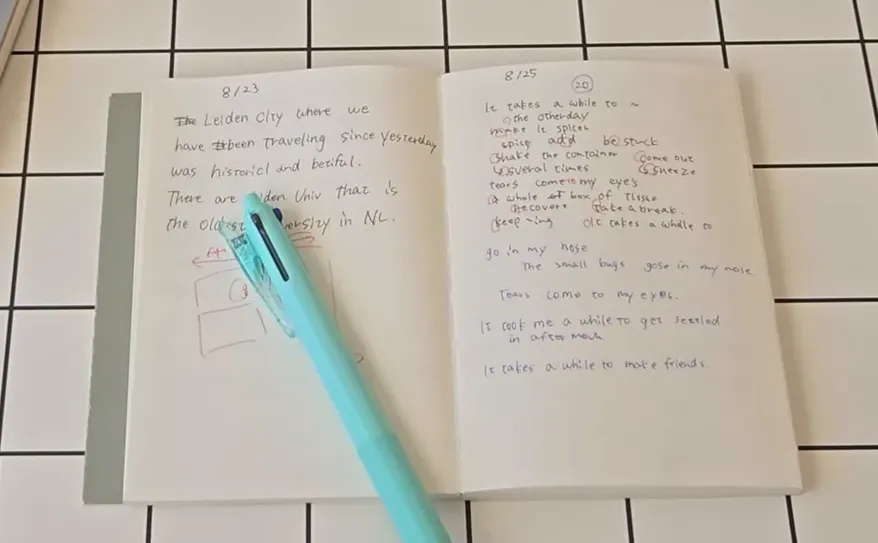 8/23
The Leiden City where we
have been traveling since yesterday
was historicl and betiful.
There are Leiden Univ that is
the oldest in NL.
8/25
20
It takes a while to ~
the otherday
make it spicer
spicy add be stuck
shake the container come out
several times sneeze
tears come to my eye's
a whole of box of Tissue
Recover take a break.
keep ~ing It takes a while to
go in my nose
The small bugs gose in my nose.
Tears come to my eyes.
It took me a while to get settled
in after
It takes a while to make friends.